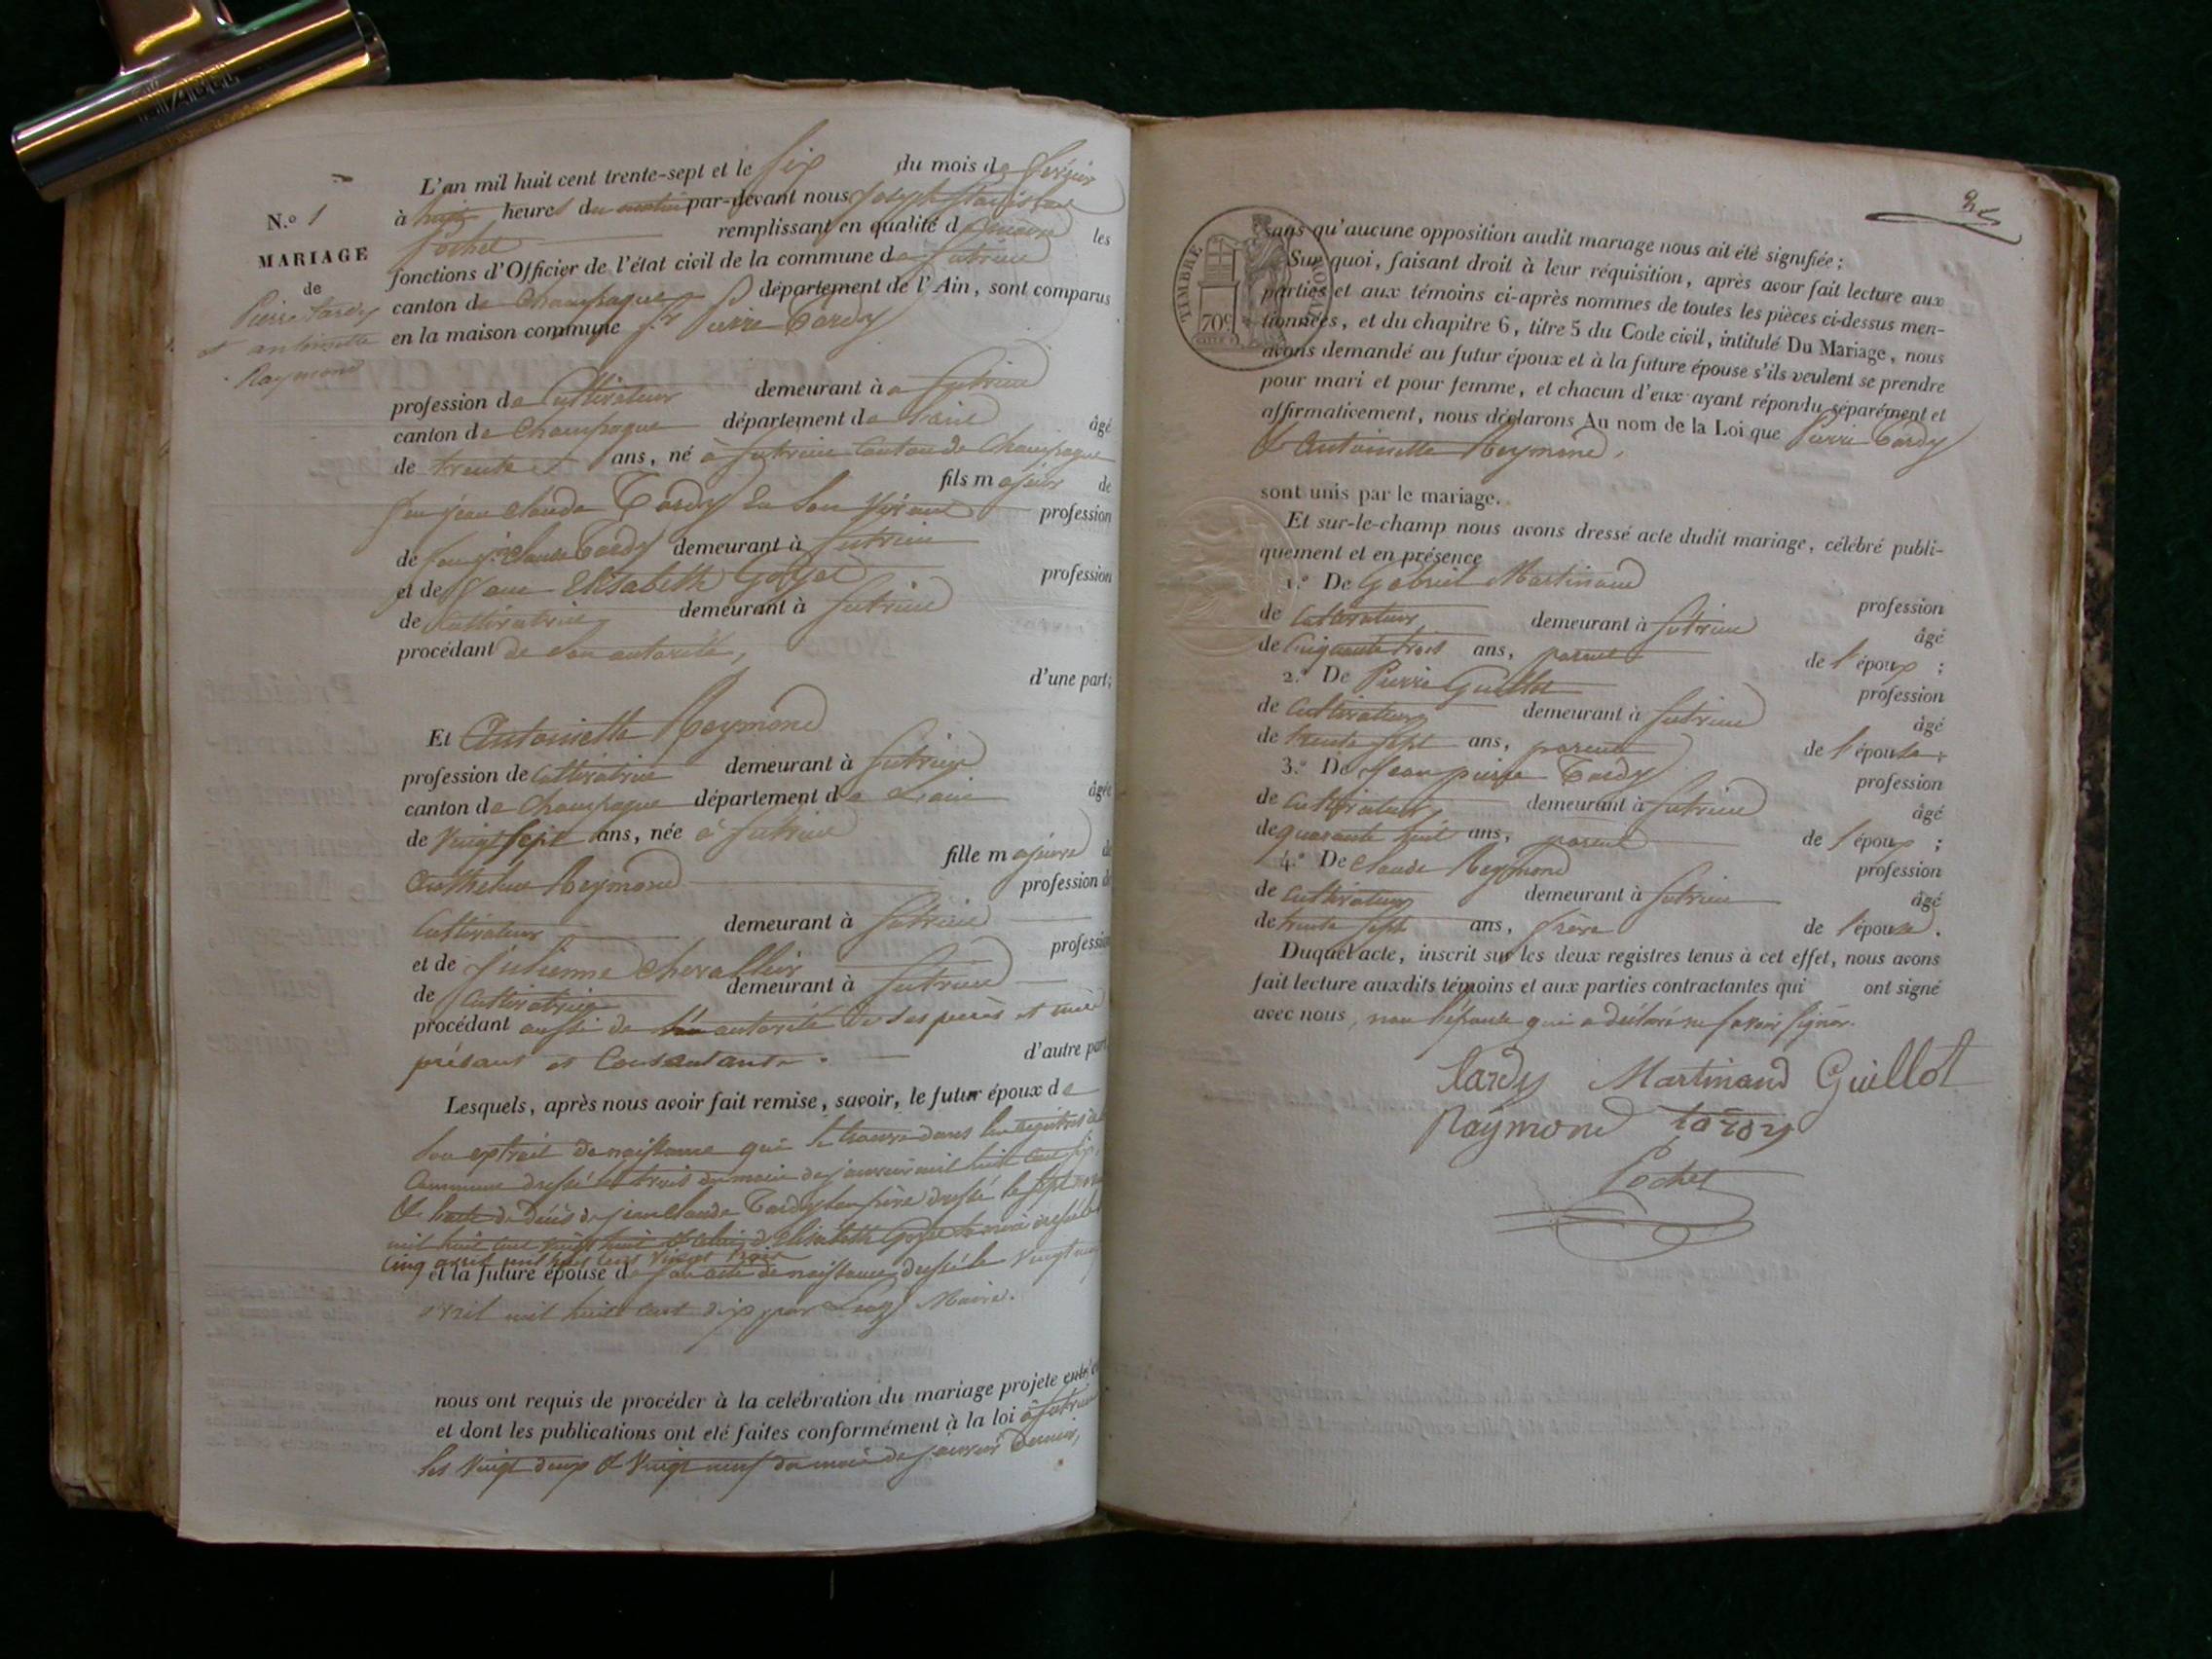 N.º 1
MARIAGE
de
Pierre Tardy
et antoinette
Raymond
L'an mil huit cent trente-sept et le six du mois de février
à huit heures du matin par-devant nous Joseph Stanislas
Pochet remplissant en qualité de maire les
fonctions d'Officier de l'état civil de la commune de Sutrieu
canton de Champagne département de l'Ain, sont comparus
en la maison commune Sr Pierre Tardy
profession de Cultivateur demeurant à Sutrieu
canton de Champagne département de Lain âgé
de trente ans, né à Sutrieu Canton de Champagne
fils majeur de
feu jean claude Tardy En son vivant profession
de feu jn Claude Tardy demeurant à Sutrieu
et de Elisabeth Goyet profession
de Cultivatrice demeurant à Sutrieu
procédant de son autorité,
d'une part;
Et Antoinette Reymond
profession de Cultivatrice demeurant à Sutrieu
canton de Champagne département de Lain âgée
de vingt sept ans, née à Sutrieu
fille majeure de
Anthelme Reymond profession de
Cultivateur demeurant à Sutrieu
et de Julienne Chevallier profession
de Cultivatrice demeurant à Sutrieu
procédant aussi de autorité de ses pères et mère
présant et Consentante. d'autre part
Lesquels, après nous avoir fait remise, savoir, le futur époux de
Son extrait de naissance qui se trouve dans les registres de
Commune dressé le trois du mois de janvier mil huit cent six,
& l'acte de décès de jean claude Tardy son père dressé le sept
mil huit cent vingt huit & celui d'Elisabeth Goyet sa mère dressé le
Cinq avril mil huit cent vingt trois
et la future épouse de son acte de naissance dressé le vingt
avril mil huit cent dix par Maire.
nous ont requis de procéder à la célébration du mariage projeté entr'eux
et dont les publications ont été faites conformément à la loi à Sutrieu
les vingt deux & vingt neuf du mois de janvier dernier,
2
sans qu'aucune opposition audit mariage nous ait été signifiée;
Sur quoi, faisant droit à leur réquisition, après avoir fait lecture aux
parties et aux témoins ci-après nommés de toutes les pièces ci-dessus men-
tionnées, et du chapitre 6, titre 5 du Code civil, intitulé Du Mariage, nous
avons demandé au futur époux et à la future épouse s'ils veulent se prendre
pour mari et pour femme, et chacun d'eux ayant répondu séparément et
affirmativement, nous déclarons Au nom de la Loi que Pierre Tardy
& Antoinette Reymond,
sont unis par le mariage.
Et sur-le-champ nous avons dressé acte dudit mariage, célébré publi-
quement et en présence
1.º De Gabriel Martinand profession
de Cultivateur demeurant à Sutrieu âgé
de Cinquante trois ans, parent de l'époux ;
2.º De Pierre Guillot profession
de Cultivateur demeurant à Sutrieu âgé
de trente sept ans, parent de l'épouse ;
3.º De Jean pierre Tardy profession
de Cultivateur demeurant à Sutrieu âgé
de quarante huit ans, parent de l'époux ;
4.º De Claude Reymond profession
de Cultivateur demeurant à Sutrieu âgé
de trente sept ans, frère de l'épouse.
Duquel acte, inscrit sur les deux registres tenus à cet effet, nous avons
fait lecture auxdits témoins et aux parties contractantes qui ont signé
avec nous, non l'épouse qui a déclaré ne savoir signer.
Tardy Martinand Guillot
Raymond tardy
Pochet
TIMBRE ROYAL
70c